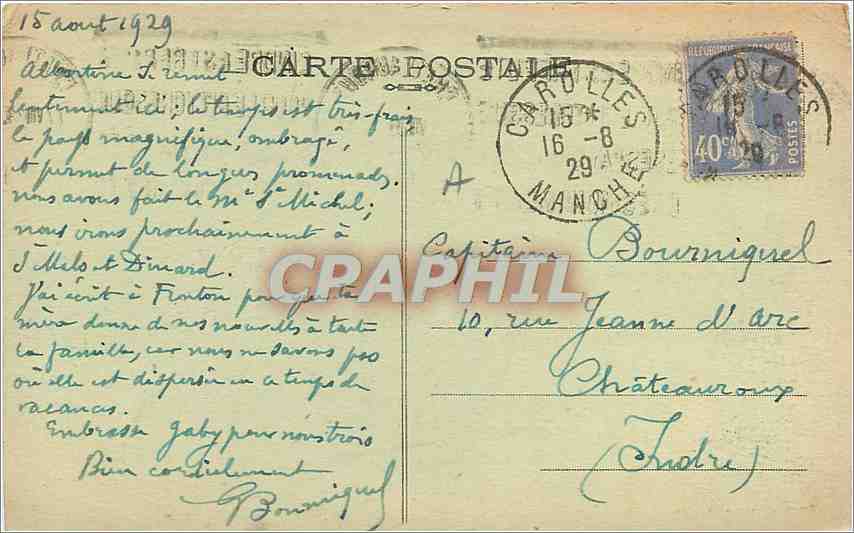 15 aout 1929
CARTE POSTALE
Albertine se remet
lentement ici; le temps est très frais
le pays magnifique, ombragé,
et permet de longues promenades.
nous avons fait le Mt St Michel;
nous irons prochainement à
St Malo et Dinard.
J'ai écrit à Fronton pour que ta
mère donne de nos nouvelles à toute
la famille, car nous ne savons pas
où elle est dispersée en ce temps de
vacances.
Embrasse Gaby pour nous trois
Bien cordialement
Bourniquel
CAROLLES
15 *
16 - 8
29
MANCHE
REPUBLIQUE FRANÇAISE
40c
POSTES
CAROLLES
15
16 - 8
29
A
Capitaine Bourniquel
10, rue Jeanne d'Arc
Châteauroux
(Indre)
CPRAPHIL